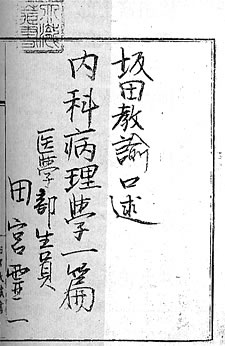 坂田教諭口述
内科病理學一篇
医學部生員
田宮